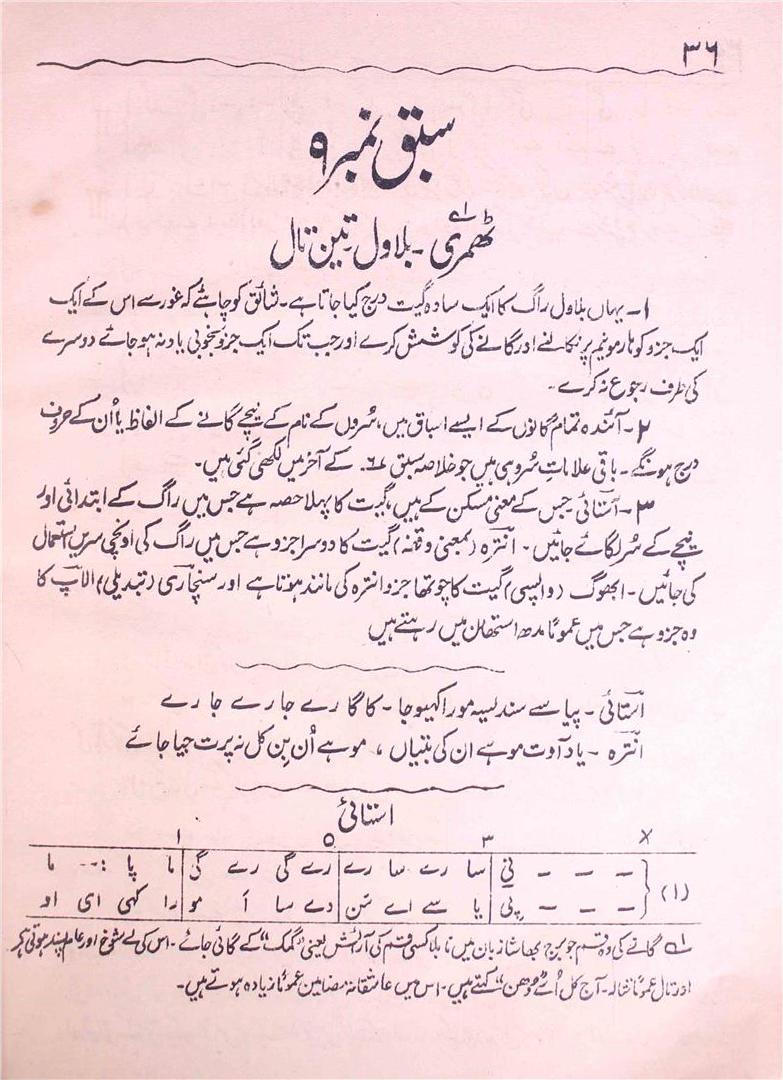 ۳۶
سبق نمبر ۹
ٹھمری۱ے - بلاول تین تال
۱- یہاں بلاول راگ کا ایک سادہ گیت درج کیا جاتا ہے۔ شائق کو چاہئے کہ غور سے اس کے ایک
ایک جزو کو ہارمونیم پر نکالنے اور گانے کی کوشش کرے اور جب تک ایک جزو بخوبی یاد نہ ہو جائے دوسرے
کی طرف رجوع نہ کرے۔
۲- آئندہ تمام گانوں کے ایسے اسباق میں، سُروں کے نام کے نیچے گانے کے الفاظ یا اُن کے حروف
درج ہونگے۔ باقی علامات سُر وہی ہیں جو خلاصہ سبق ۶۷ کے آخر میں لکھی گئی ہیں۔
۳- آستائی جس کے معنی مسکن کے ہیں، گیت کا پہلا حصہ ہے جس میں راگ کے ابتدائی اور
نیچے کے سُر لگائے جائیں۔ انترہ (بمعنی وقفہ) گیت کا دوسرا جزو ہے جس میں راگ کی اونچی سریں استعمال
کی جائیں۔ ابھوگ (واپسی) گیت کا چوتھا جزو انترہ کی مانند ہوتا ہے اور سنچاری (تبدیلی) الاپ کا
وہ جزو ہے جس میں عموماً مدھ استھان میں رہتے ہیں
آستائی - پیا سے سندیسہ مورا کہیو جا - کاگا رے جا رے جا رے
انترہ - یاد آوت موہے ان کی بتیاں ، موہے اُن بِن کل نہ پرت جیا جائے
استائی
x ۳ ۵ ۱
(۱) - - - نِی سا رے سا رے رے گی رے گی ما پا :-- ما
- - - پی یا سے اے سَن دے سا اَ مو را کہی ای او
۱ے گانے کی وہ قسم جو برج بھاشا زبان میں بلا کسی قسم کی آرائش یعنی "گمک" کے گائی جائے۔ اس کی لے شوخ اور عام پسند ہوتی ہے
اور تال عموماً سہ تالہ۔ آج کل اُسے "دُھن" کہتے ہیں۔ اس میں عاشقانہ مضامین عموماً زیادہ ہوتے ہیں۔